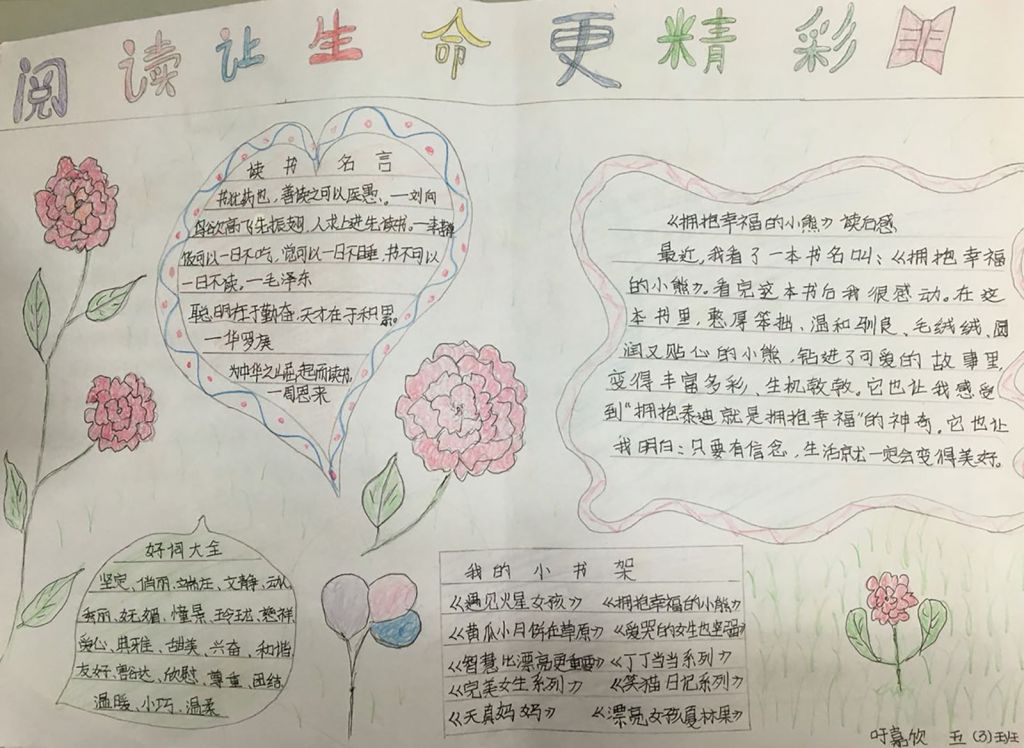 阅读让生命更精彩
读书名言
书犹药也，善读之可以医愚。—刘向
鸟欲高飞先振翅，人求上进先读书。—李若禅
饭可以一日不吃，觉可以一日不睡，书不可以
一日不读。—毛泽东
聪明在于勤奋，天才在于积累。
—华罗庚
为中华之崛起而读书。
—周恩来
《拥抱幸福的小熊》读后感
最近，我看了一本书名叫：《拥抱幸福
的小熊》。看完这本书后我很感动。在这
本书里，憨厚笨拙、温和驯良、毛绒绒、圆
润又贴心的小熊，钻进了可爱的故事里，
变得丰富多彩、生机敦敦。它也让我感受
到“拥抱泰迪就是拥抱幸福”的神奇。它也让
我明白：只要有信念，生活就一定会变得美好。
好词大全
坚定、俏丽、端庄、文静、动人
秀丽、妩媚、憧景、玲珑、慈祥
爱心、典雅、甜美、兴奋、和谐
友好、豁达、欣慰、尊重、团结
温暖、小巧、温柔
我的小书架
《遇见火星女孩》 《拥抱幸福的小熊》
《黄瓜小月饼在草原》 《爱哭的女生也坚强》
《智慧比漂亮更重要》 《丁丁当当系列》
《完美女生系列》 《笑猫日记系列》
《天真妈妈》 《漂亮女孩夏林果》
嘉欣 五(3)班